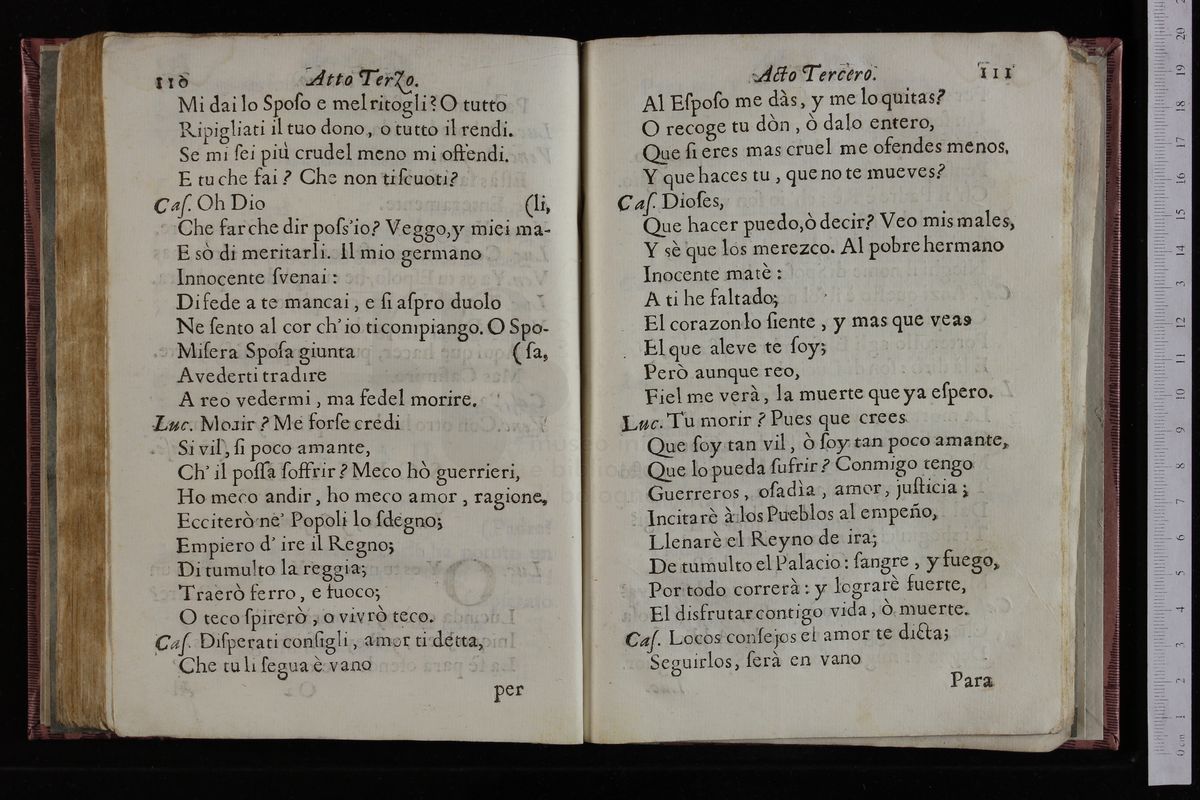 110 Atto Terzo.
Mi dai lo Spoſo e mel ritogli? O tutto
Ripigliati il tuo dono, o tutto il rendi.
Se mi ſei più crudel meno mi offendi.
E tu che fai? Che non ti ſcuoti?
Caſ. Oh Dio (li,
Che far che dir poſs'io? Veggo,y miei ma-
E sò di meritarli. Il mio germano
Innocente ſvenai:
Di fede a te mancai, e ſi aſpro duolo
Ne ſento al cor ch'io ti compiango. O Spo-
Miſera Spoſa giunta (ſa,
A vederti tradire
A reo vedermi, ma fedel morire.
Luc. Morir? Me forſe credi
Si vil, ſi poco amante,
Ch'il poſſa ſoffrir? Meco hò guerrieri,
Ho meco andir, ho meco amor, ragione,
Ecciterò ne' Popoli lo ſdegno;
Empiero d'ire il Regno;
Di tumulto la reggia;
Traerò ferro, e fuoco;
O teco ſpirerò, o vivrò teco.
Caſ. Diſperati conſigli, amor ti detta,
Che tu li ſegua è vano
per
Acto Tercero. 111
Al Eſpoſo me dàs, y me lo quitas?
O recoge tu dòn, ò dalo entero,
Que ſi eres mas cruel me ofendes menos,
Y que haces tu, que no te mueves?
Caſ. Dioſes,
Que hacer puedo,ò decir? Veo mis males,
Y sè que los merezco. Al pobre hermano
Inocente matè:
A ti he faltado;
El corazon lo ſiente, y mas que veas
El que aleve te ſoy;
Però aunque reo,
Fiel me verà, la muerte que ya eſpero.
Luc. Tu morir? Pues que crees
Que ſoy tan vil, ò ſoy tan poco amante,
Que lo pueda ſufrir? Conmigo tengo
Guerreros, oſadìa, amor, juſticia;
Incitarè à los Pueblos al empeño,
Llenarè el Reyno de ira;
De tumulto el Palacio: ſangre, y fuego,
Por todo correrà: y lograrè fuerte,
El disfrutar contigo vida, ò muerte.
Caſ. Locos conſejos el amor te dicta;
Seguirlos, ſerà en vano
Para